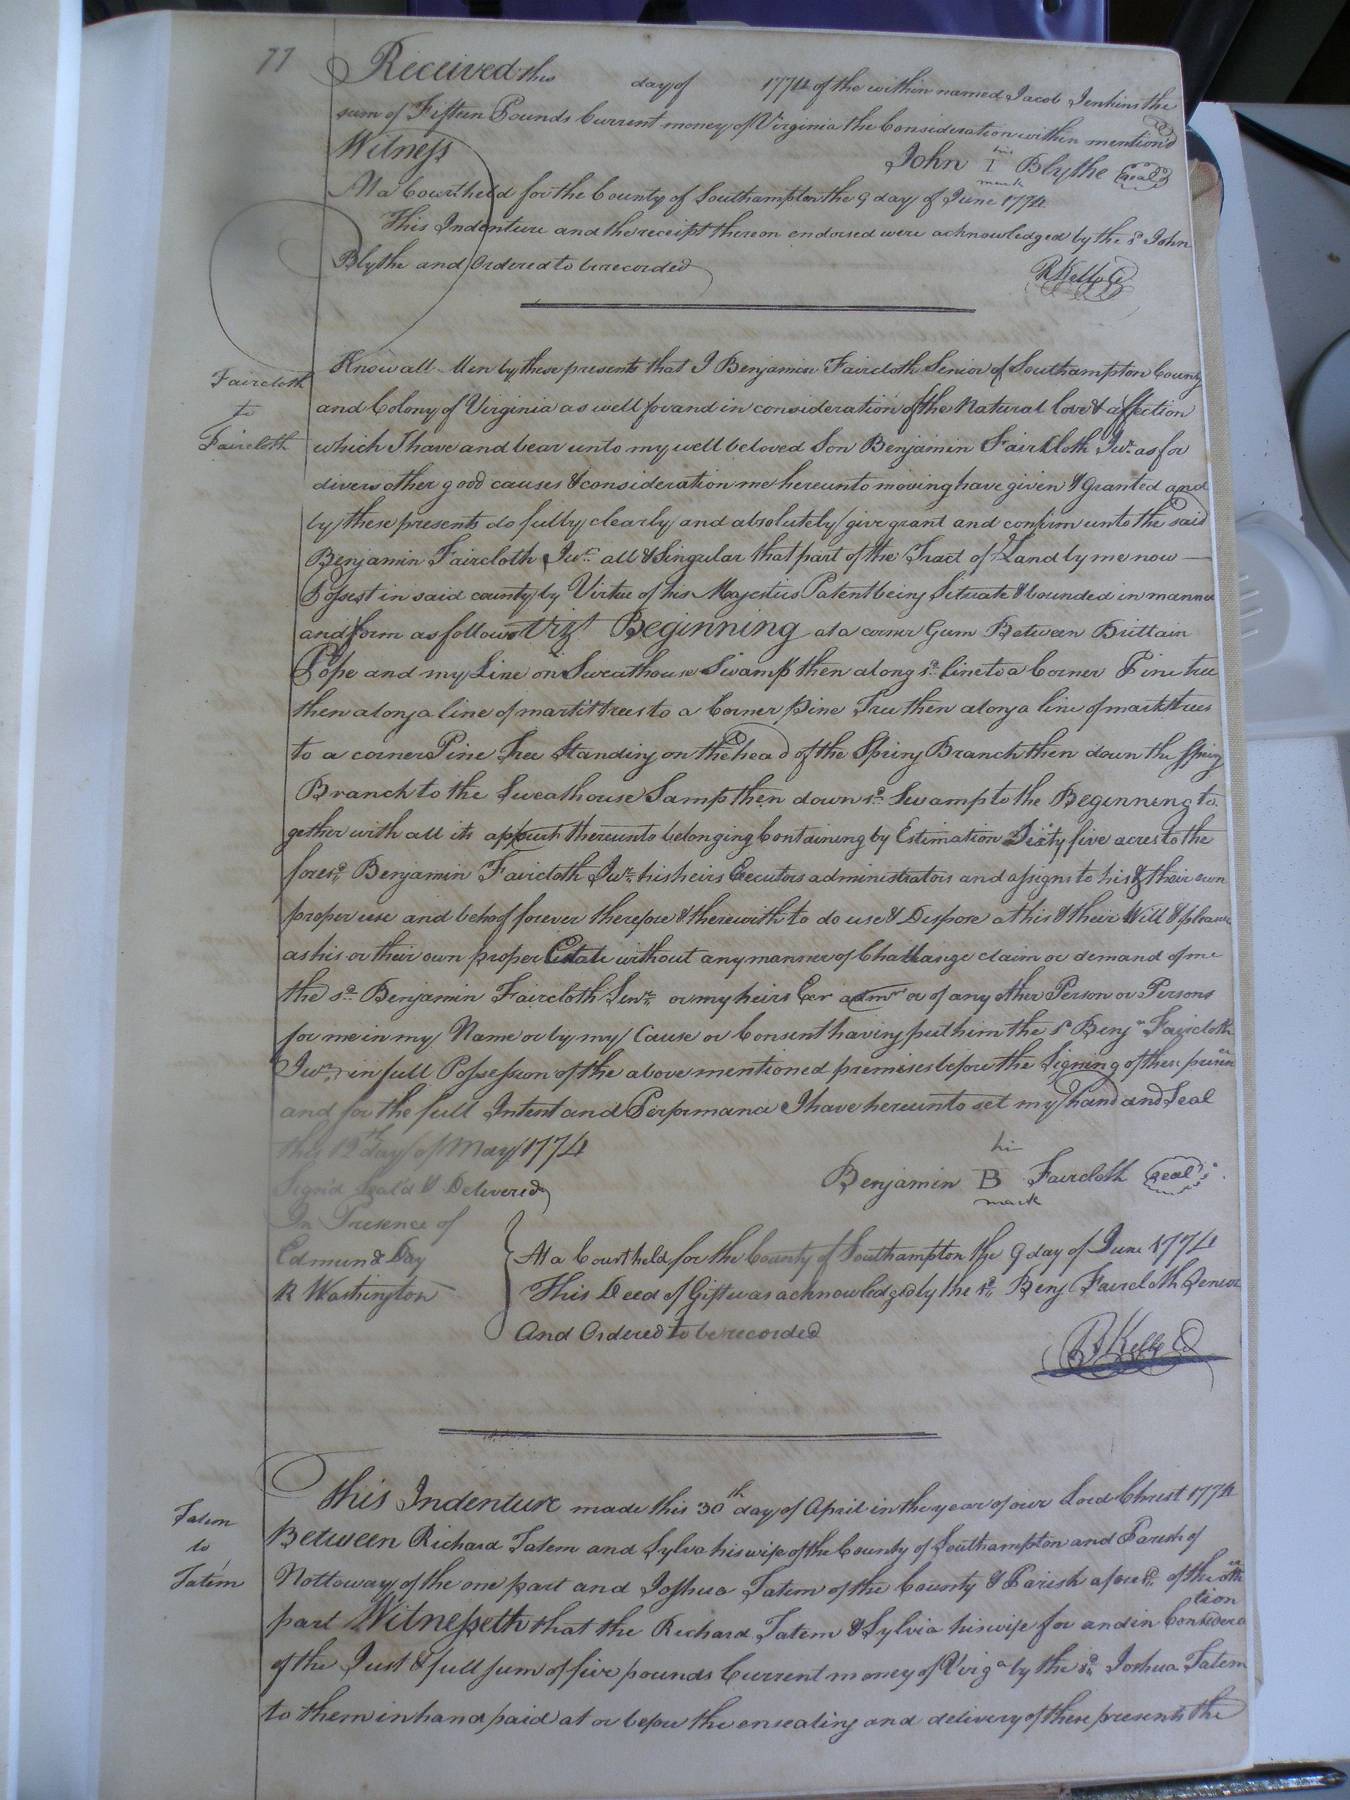 77
Received this day of 1774 of the within named Jacob Jenkins the
sum of Fifteen Pounds Current money of Virginia the Consideration within mention'd
Witness
his
John I Blythe Seal
mark
At a Court held for the County of Southampton the 9 day of June 1774
This Indenture and the receipt thereon endorsed were acknowledged by the sd John
Blythe and Ordered to be recorded
R Kello C
Faircloth
to
Faircloth
Know all Men by these presents that I Benjamin Faircloth Senior of Southampton County
and Colony of Virginia as well for and in consideration of the Natural love & affection
which I have and bear unto my well beloved Son Benjamin Faircloth Junr. as for
divers other good causes & consideration me hereunto moving have given & Granted and
by these presents do fully clearly and absolutely give grant and confirm unto the said
Benjamin Faircloth Junr. all & Singular that part of the Tract of Land by me now
Possest in said county by Virtue of his Majesties Patent being Setuate & bounded in manner
and form as follows Vizt Beginning at a corner Gum Between Brittain
Pope and my Line on Sweathouse Swamp then along sd. line to a Corner Pine tree
then along a line of markt trees to a Corner pine Tree then along a line of markt trees
to a corner Pine Tree Standing on the head of the Spring Branch then down the Spring
Branch to the Sweathouse Samp then down sd. Swamp to the Beginning to
gether with all its appurts thereunto belonging Containing by Estimation Sixty five acres to the
foresd. Benjamin Faircloth Junr. his heirs Executors administrators and assigns to his & their own
proper use and behoof forever therefore & therewith to do use & Dispose at his & their Will & pleasure
as his or their own proper Estate without any manner of Challange claim or demand of me
the sd. Benjamin Faircloth Senr. or my heirs Exr admr or of any other Person or Persons
for me in my Name or by my Cause or Consent having put him the sd Benjn. Faircloth
Junr. in full Possession of the above mentioned premises before the Signing of these
and for the full Intent and Performance I have hereunto set my hand and Seal
this 12th day of May 1774
his
Benjamin B Faircloth Seal
mark
Signd Seald & Delivered
In Presence of
Edmund Day
R Washington
At a Court held for the County of Southampton the 9 day of June 1774
This Deed of Gift was acknowledged by the sd. Benj Faircloth Senior
And Ordered to be recorded
R Kello C
Tatem
to
Tatem
This Indenture made this 30th day of April in the year of our Lord Christ 1774
Between Richard Tatem and Sylva his wife of the County of Southampton and Parish of
Nottoway of the one part and Joshua Tatem of the County & Parish aforesd. of the other
part Witnesseth that the Richard Tatem & Sylvia his wife for and in Consideration
of the Just & full sum of five pounds Current money of Virga by the sd. Joshua Tatem
to them in hand paid at or before the ensealing and delivery of these presents the